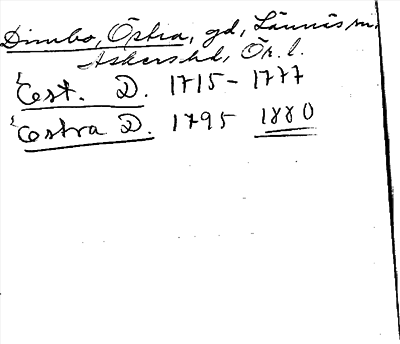 Dimbo, Östra, gd, Lännäs sn,
Askers hd, Ör. l.
Œst. D. 1715-1777
Œstra D. 1795 1880